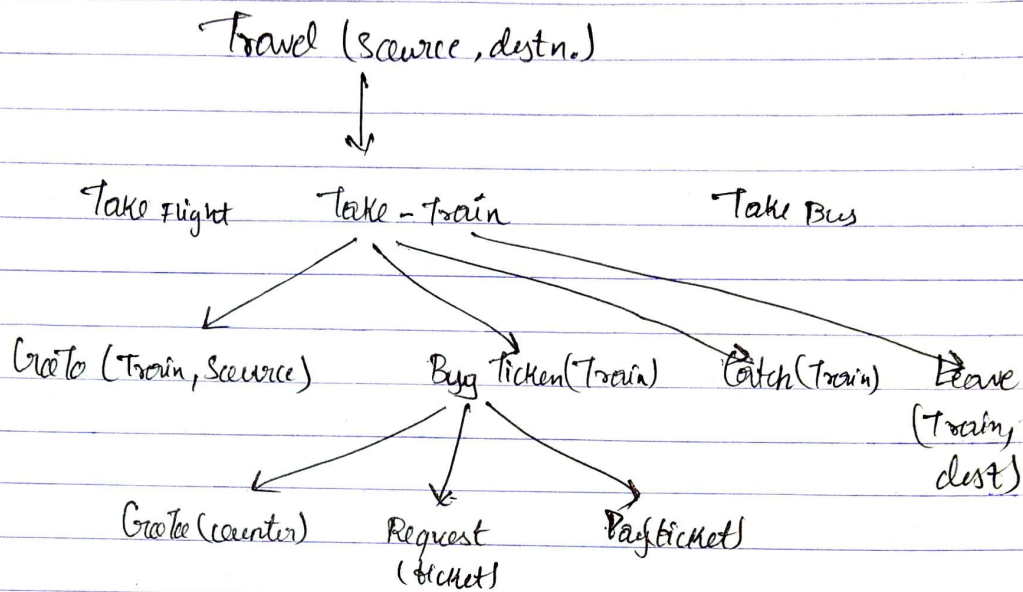 Travel (source, destn.)
Take Flight Take-Train Take Bus
GoTo (Train, Source) Buy Ticken(Train) Catch(Train) Leave
(Train,
dest)
GoTo (counter) Request Pay(ticket)
(ticket)